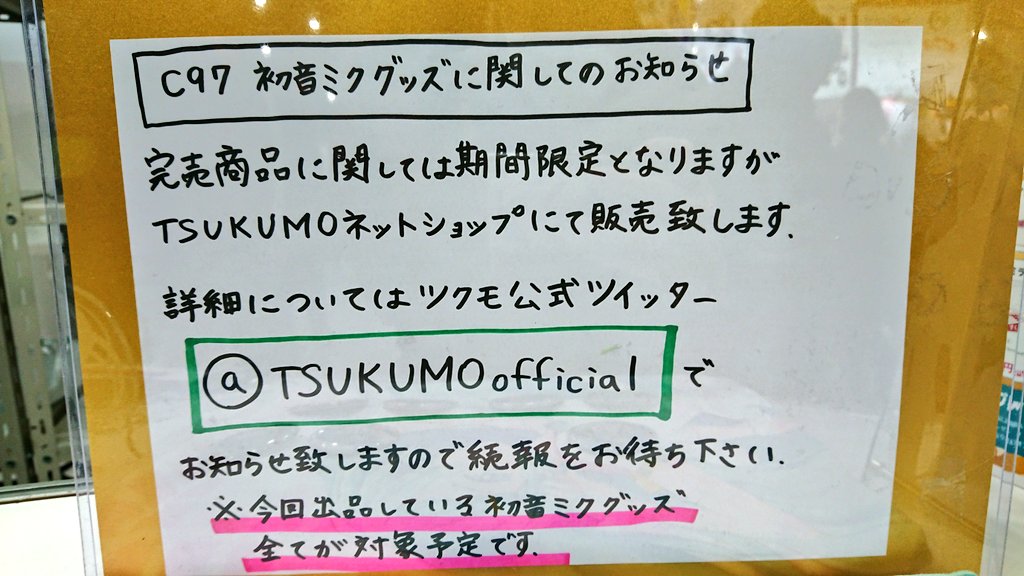 C97 初音ミクグッズに関してのお知らせ
完売商品に関しては期間限定となりますが
TSUKUMOネットショップにて販売致します.
詳細についてはツクモ公式ツイッター
@TSUKUMOofficial で
お知らせ致しますので続報をお待ち下さい.
※今回出品している初音ミクグッズ
全てが対象予定です.